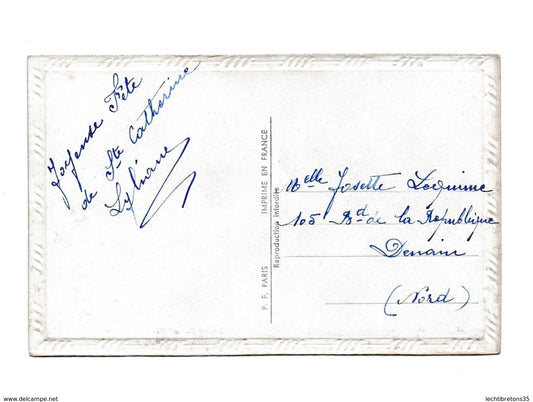 Joyeuse Fête
de Ste Catherine
IMPRIME EN FRANCE
Reproduction interdite
P. F. PARIS
Melle Josette
105 Bd de la Republique
Denain
(Nord)
https://www.delcampe.net
lechtibretons35